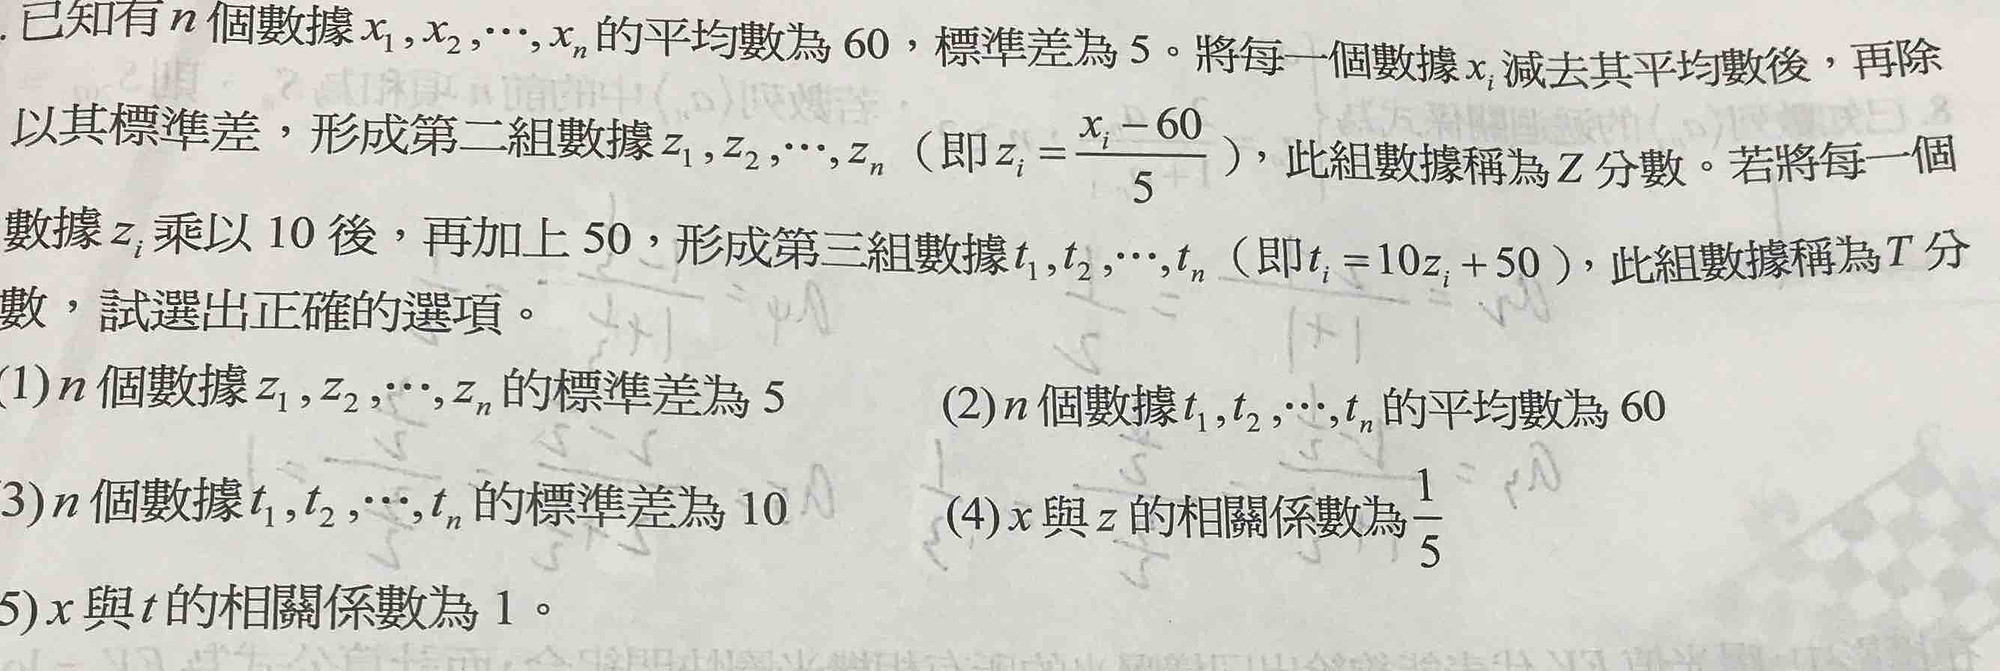 . 已知有 n 個數據 x₁, x₂, ⋯, xₙ 的平均數為 60，標準差為 5。將每一個數據 xᵢ 減去其平均數後，再除
以其標準差，形成第二組數據 z₁, z₂, ⋯, zₙ（即 zᵢ = (xᵢ − 60)/5），此組數據稱為 Z 分數。若將每一個
數據 zᵢ 乘以 10 後，再加上 50，形成第三組數據 t₁, t₂, ⋯, tₙ（即 tᵢ = 10zᵢ + 50），此組數據稱為 T 分
數，試選出正確的選項。
(1) n 個數據 z₁, z₂, ⋯, zₙ 的標準差為 5 (2) n 個數據 t₁, t₂, ⋯, tₙ 的平均數為 60
3) n 個數據 t₁, t₂, ⋯, tₙ 的標準差為 10 (4) x 與 z 的相關係數為 1/5
5) x 與 t 的相關係數為 1。